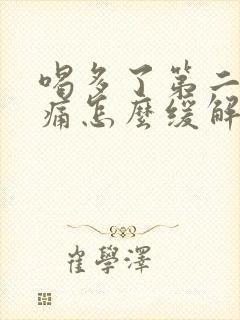 喝多了第二
痛怎麼緩解
崔學澤